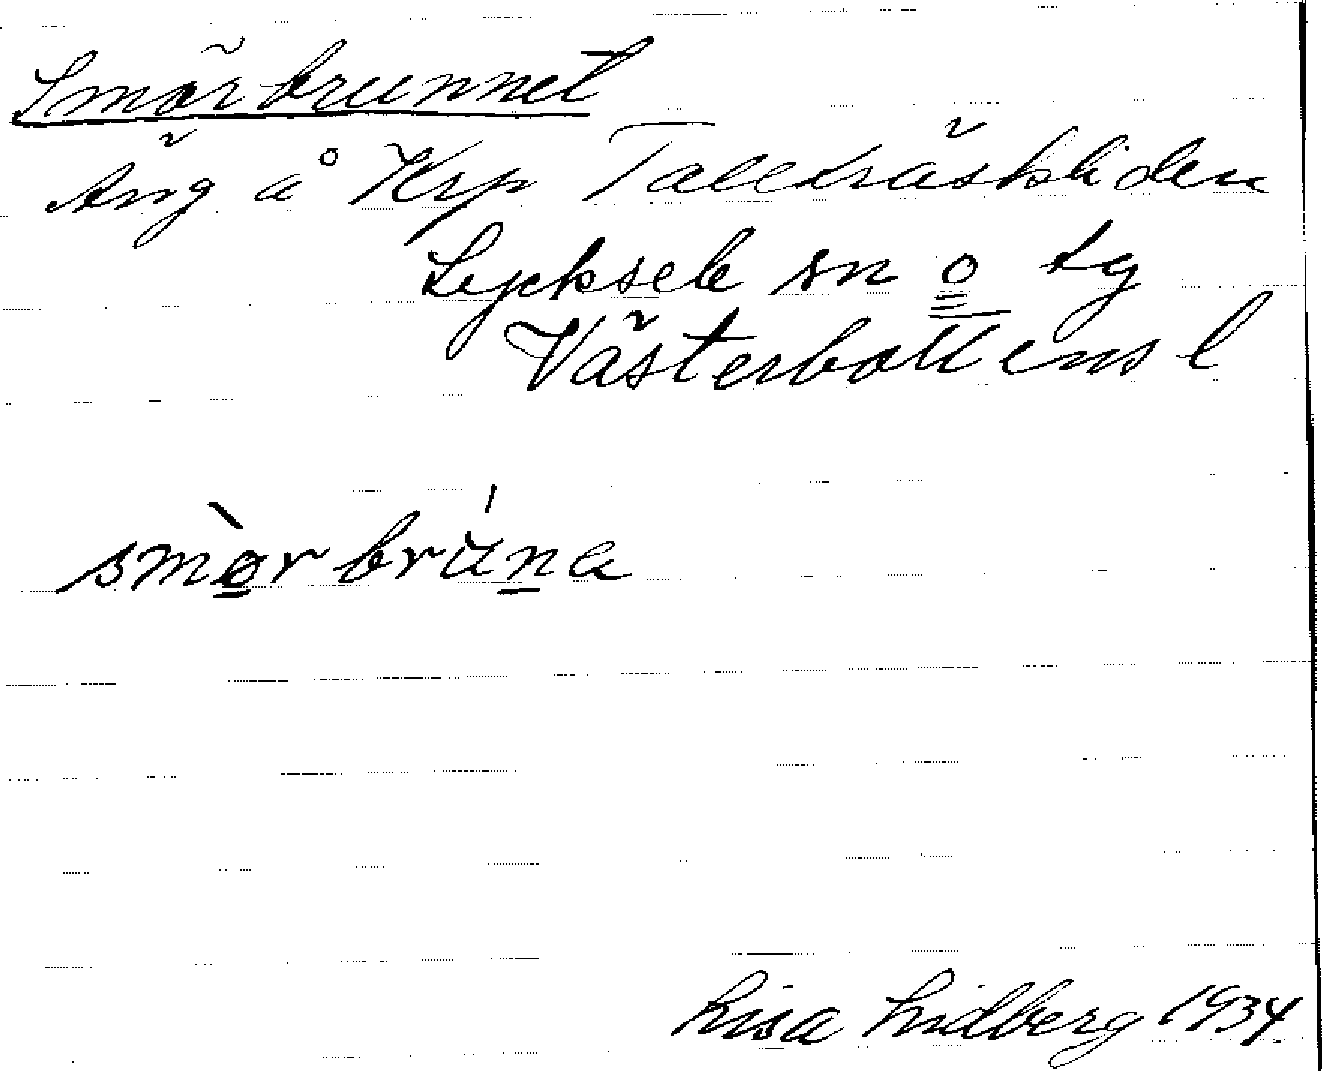 Smörbrunnet
Äng å Krp Tallträskliden
Lycksele sn o tg
Västerbottens l
smòrbrúna
Lisa Lidberg 1934